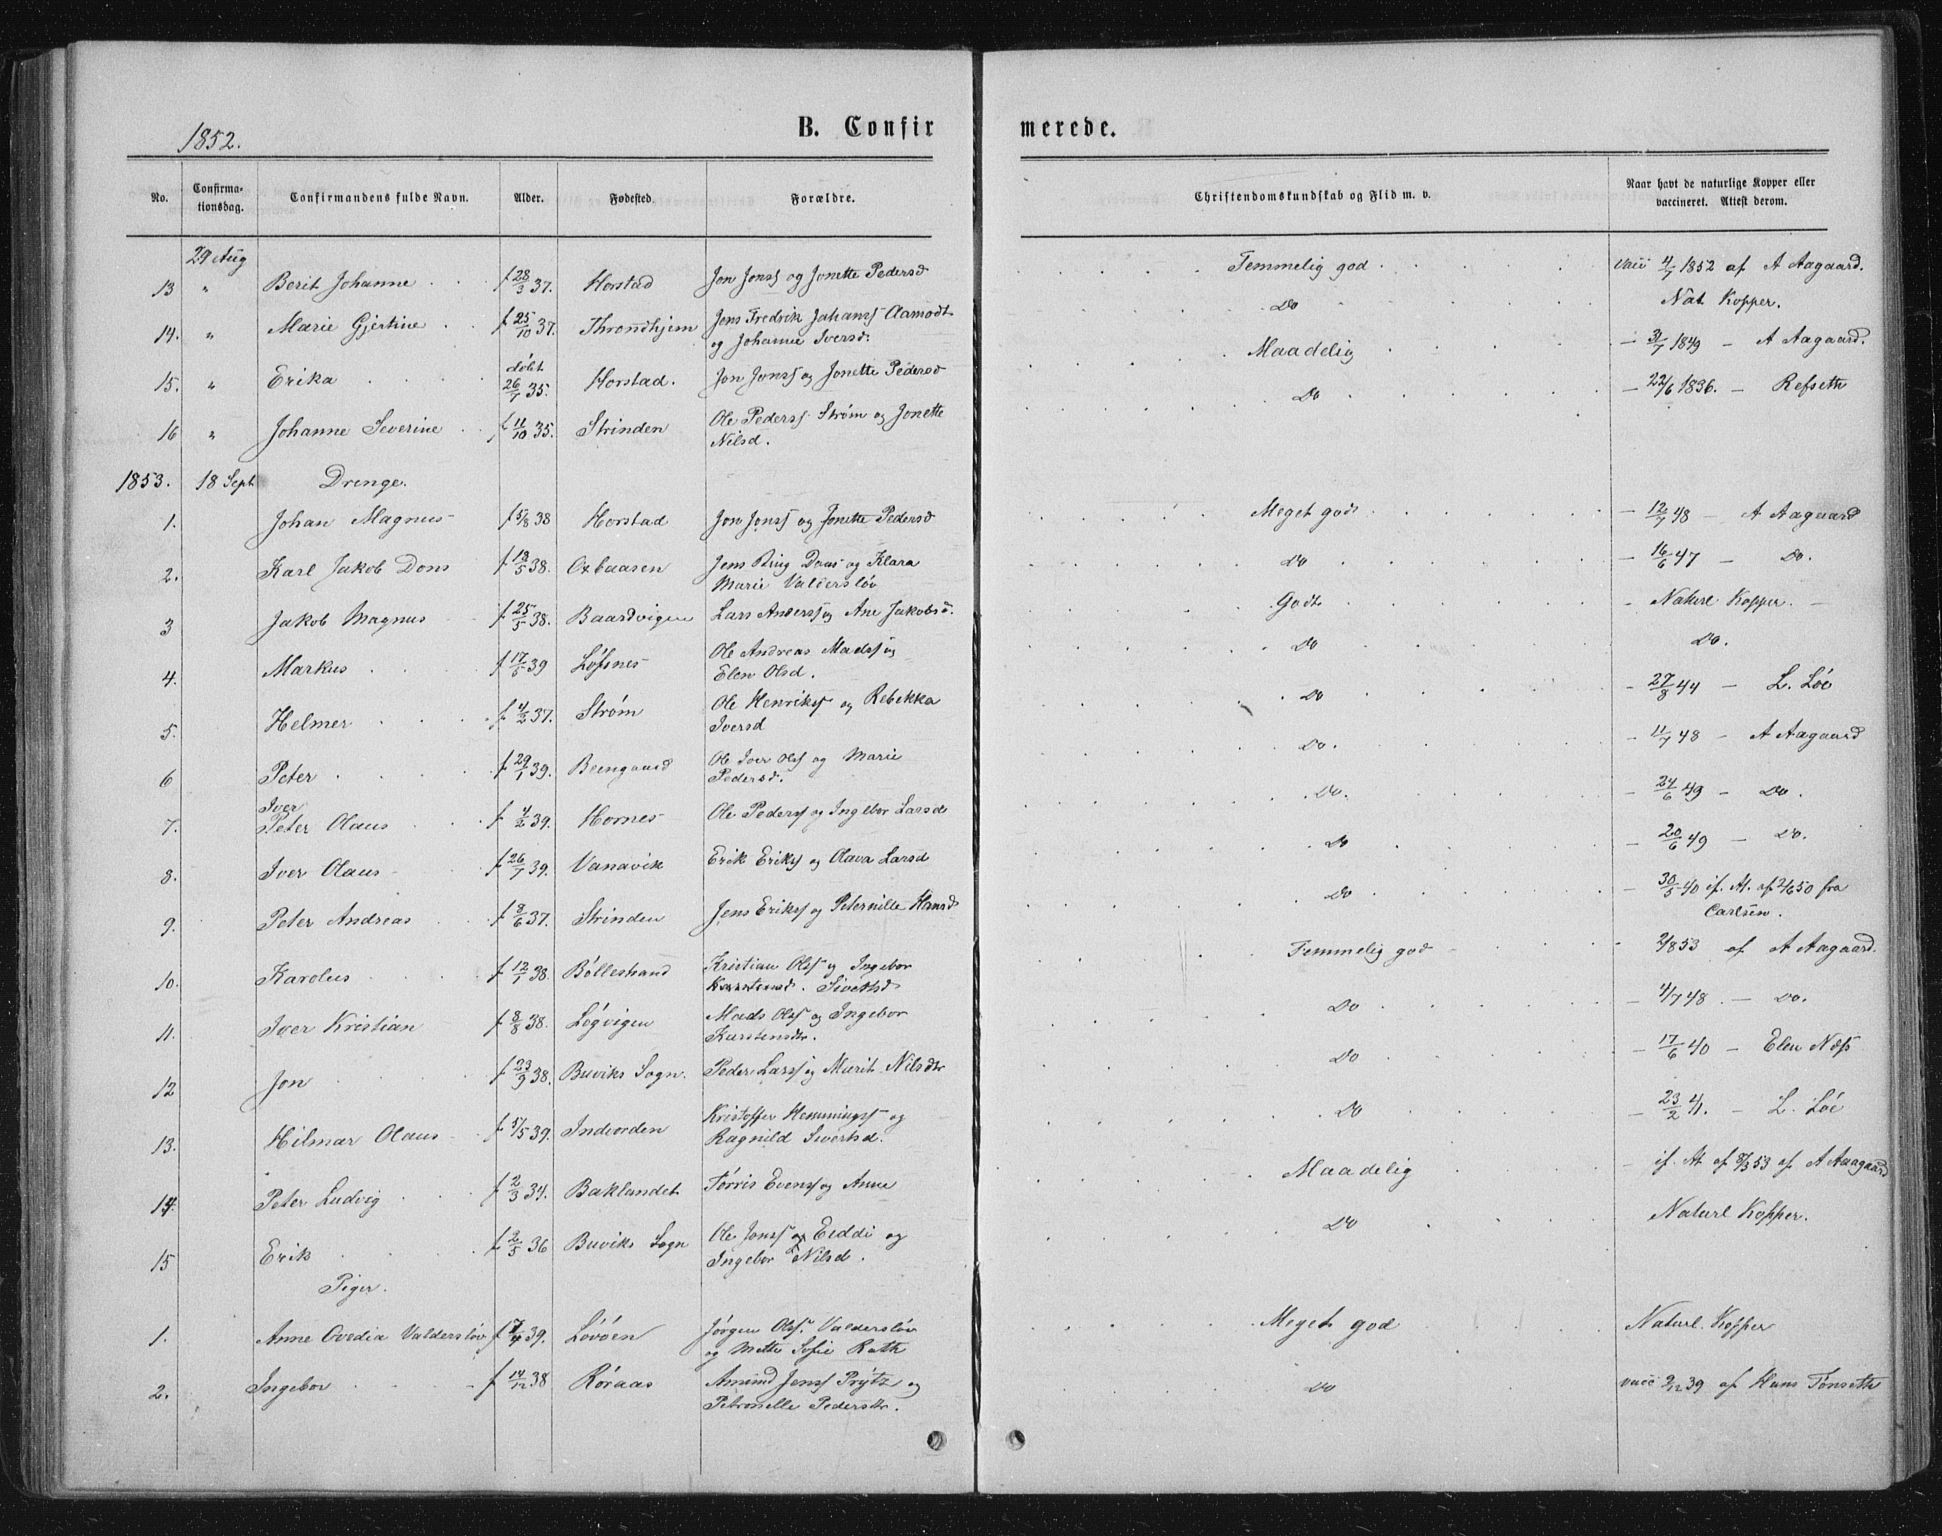 1852.
B. Confir
merede.
No. Confirma-tionsdag. Confirmandens fulde Navn. Alder. Fødested. Forældre. Christendomskundskab og Flid m. v. Naar havt de naturlige Kopper eller vaccineret. Attest derom.
29 Aug
13 " Berit Johanne f 28/3 37. Horstad Jon Jonsş og Jonette Pedersd Temmelig god vacc 4/7 1852 af A Aagaard.
14. " Marie Gjertine f 25/10 37. Throndhjem Jens Fredrik Johansş Aamodt Do Nat Kopper.
og Johanne Iversd.
15. " Erika døbt 26/7 35. Horstad. Jon Jonsş og Jonette Pedersd Maadelig — 31/7 1849 — A Aagaard.
16 " Johanne Severine f 11/10 35. Strinden Ole Pedersş Strøm og Jonette Do — 22/6 1836. — Refseth
Nilsd.
1853. 18 Sept Drenge.
1. Johan Magnus f 5/8 38 Horstad Jon Jonsş og Jonette Pedersd Meget god — 12/7 48 — A Aagaard
2. Karl Jakob Dons f 13/5 38. Oxbaasen Jens Bing Dons og Klara Do — 16/6 47 — Do.
Marie Valdersløv
3 Jakob Magnus f 25/5 38. Baardvigen Lars Andersş og Ane Jakobsd. Godt — Naturl Kopper. —
4. Markus f 17/5 39 Løfsnes Ole Andreas Madsş og Do Do.
Elen Olsd.
5. Helmer f 4/2 37. Strøm Ole Henriksş og Rebekka Do — 27/8 44 — L. Løe
Iversd
6 Peter f 29/1 39. Beengaard Ole Iver Olsş og Marie Do. — 11/7 48 — A Aagaard
Pedersd.
Iver
7. Peter Olaus f 4/2 39. Hornes Ole Pedersş og Ingebor Larsd Do. — 24/6 49 — Do.
8. Iver Olaus f 26/7 39. Vanavik Erik Eriksş og Olava Larsd Do — 20/6 49 — Do.
9. Peter Andreas f 8/6 37. Strinden Jens Eriksş og Peternille Hansd Do — 30/5 40 if. At. af 2/6 50 fra
Carlsen.
10. Karolus f 12/1 38. Bøllestrand Kristian Olsş og Ingebor Temmelig god 2/8 53 af A Aagaard.
Sivertsd
11. Iver Kristian f 8/8 38. Løgvigen Mads Olsş og Ingebor Do — 4/7 48. — Do.
Karstensdr.
12 Jon f 23/9 38. Buviks Sogn. Peder Larsş og Marit Nilsdtr Do — 17/6 40 — Elen Næss
13. Hilmar Olaus f 5/5 39. Indvorden Kristoffer Hemmingsş og Do — 23/2 41. — L. Løe
Ragnild Sivertsd.
14. Peter Ludvig f 2/3 34. Baklandet Tørris Evensş og Anne Maadelig — if. At af 8/3 53 af A Aagaard
15 Erik f 2/5 36 Buviks Sogn Ole Jonsş Eeddi og Do Naturl Kopper.
Ingebor Nilsd.
Piger.
1. Anne Ovedia Valdersløv f 17/4 39. Løvøen Jørgen Olsş. Valdersløv Meget god Naturl. Kopper
og Mette Sofie Rath
2. Ingebor f 14/12 38 Røraas Amund Jensş Prytz og Do vacc 9/12 39 af Hans Tønseth
Petronelle Pedersdtr.